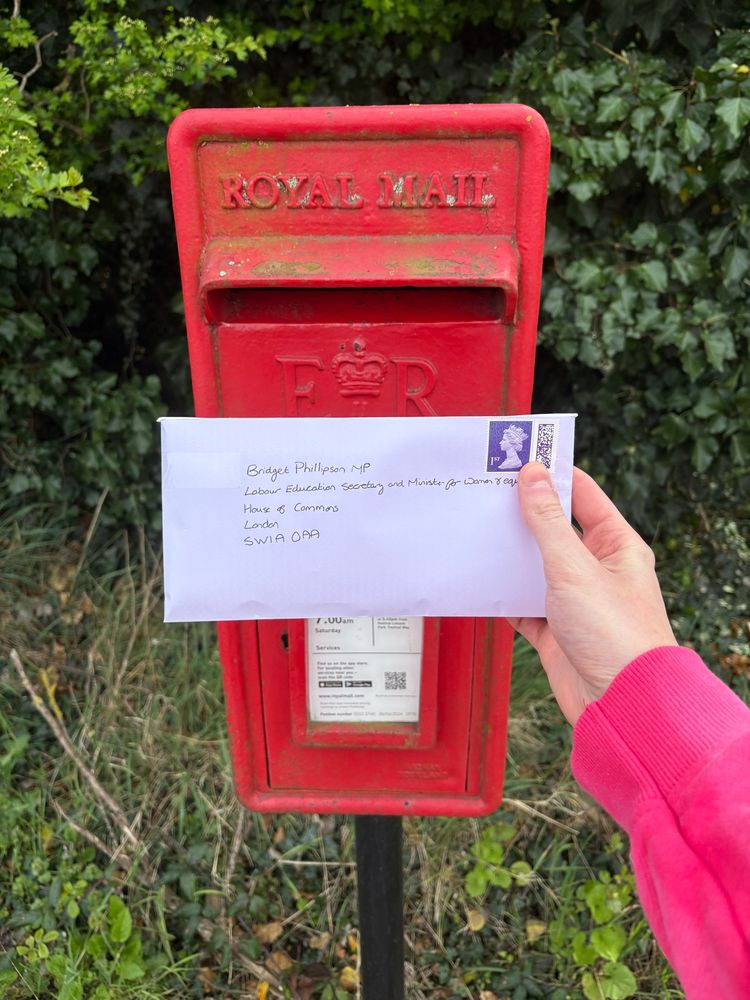 ROYAL MAIL
E R
1ST
Bridget Phillipson MP
Labour Education Secretary and Minister for Women & equ
House of Commons
London
SW1A 0AA
7.00am
Saturday
Services
Find us on the app store.
For locating other
services near you –
scan the QR code
www.royalmail.com